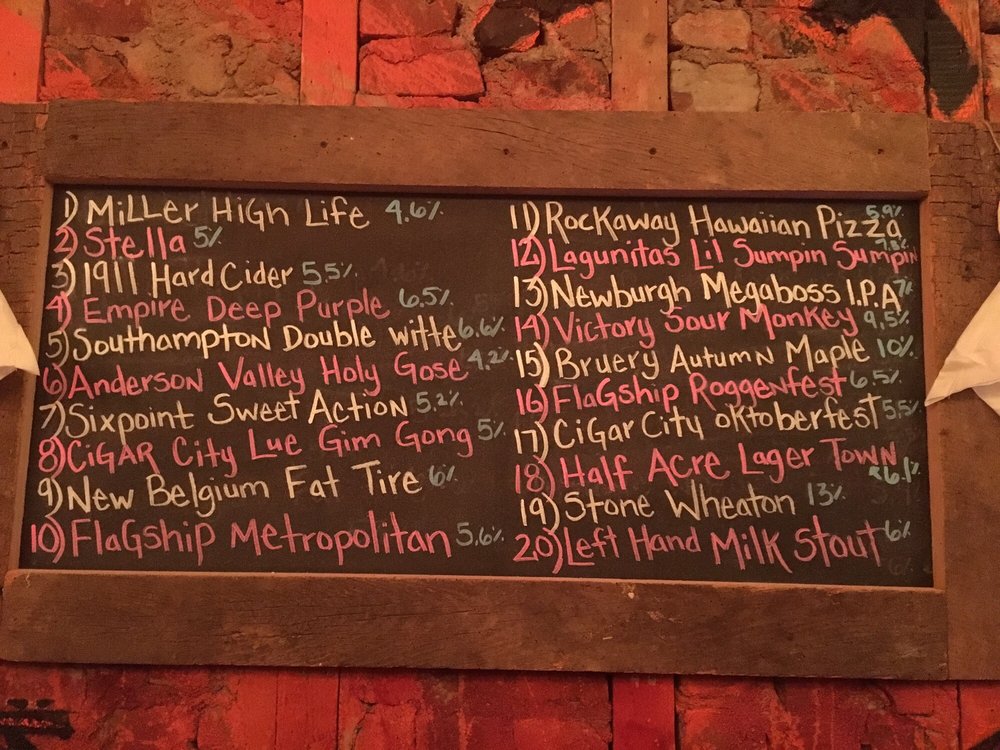 1) Miller High Life 4.6%
2) Stella 5%
3) 1911 Hard Cider 5.5%
4) Empire Deep Purple 6.5%
5) Southampton Double witte 6.6%
6) Anderson Valley Holy Gose 4.2%
7) Sixpoint Sweet Action 5.2%
8) Cigar City Lue Gim Gong 5%
9) New Belgium Fat Tire 6%
10) Flagship Metropolitan 5.6%
11) Rockaway Hawaiian Pizza 5.9%
12) Lagunitas Lil Sumpin Sumpin
13) Newburgh Megaboss I.P.A 7%
14) Victory Sour Monkey 9.5%
15) Bruery Autumn Maple 10%
16) Flagship Roggenfest 6.5%
17) Cigar City oktoberfest 5.5%
18) Half Acre Lager Town 6.1%
19) Stone Wheaton 13%
20) Left Hand Milk Stout 6%